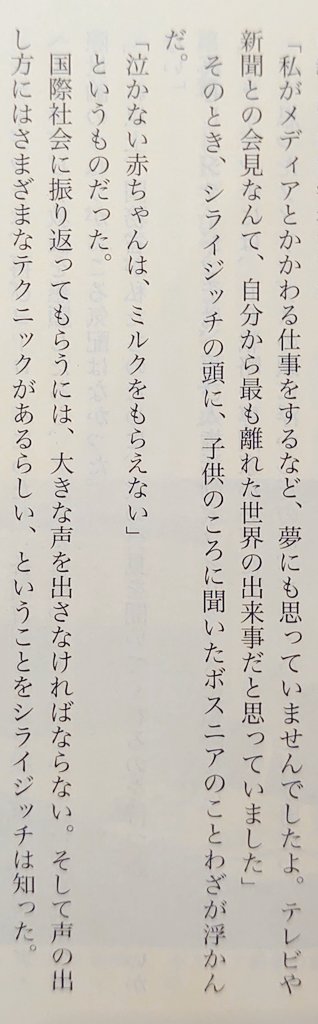 「私がメディアとかかわる仕事をするなど、夢にも思っていませんでしたよ。テレビや
新聞との会見なんて、自分から最も離れた世界の出来事だと思っていました」
そのとき、シライジッチの頭に、子供のころに聞いたボスニアのことわざが浮かん
だ。
「泣かない赤ちゃんは、ミルクをもらえない」
というものだった。
国際社会に振り返ってもらうには、大きな声を出さなければならない。そして声の出
し方にはさまざまなテクニックがあるらしい、ということをシライジッチは知った。